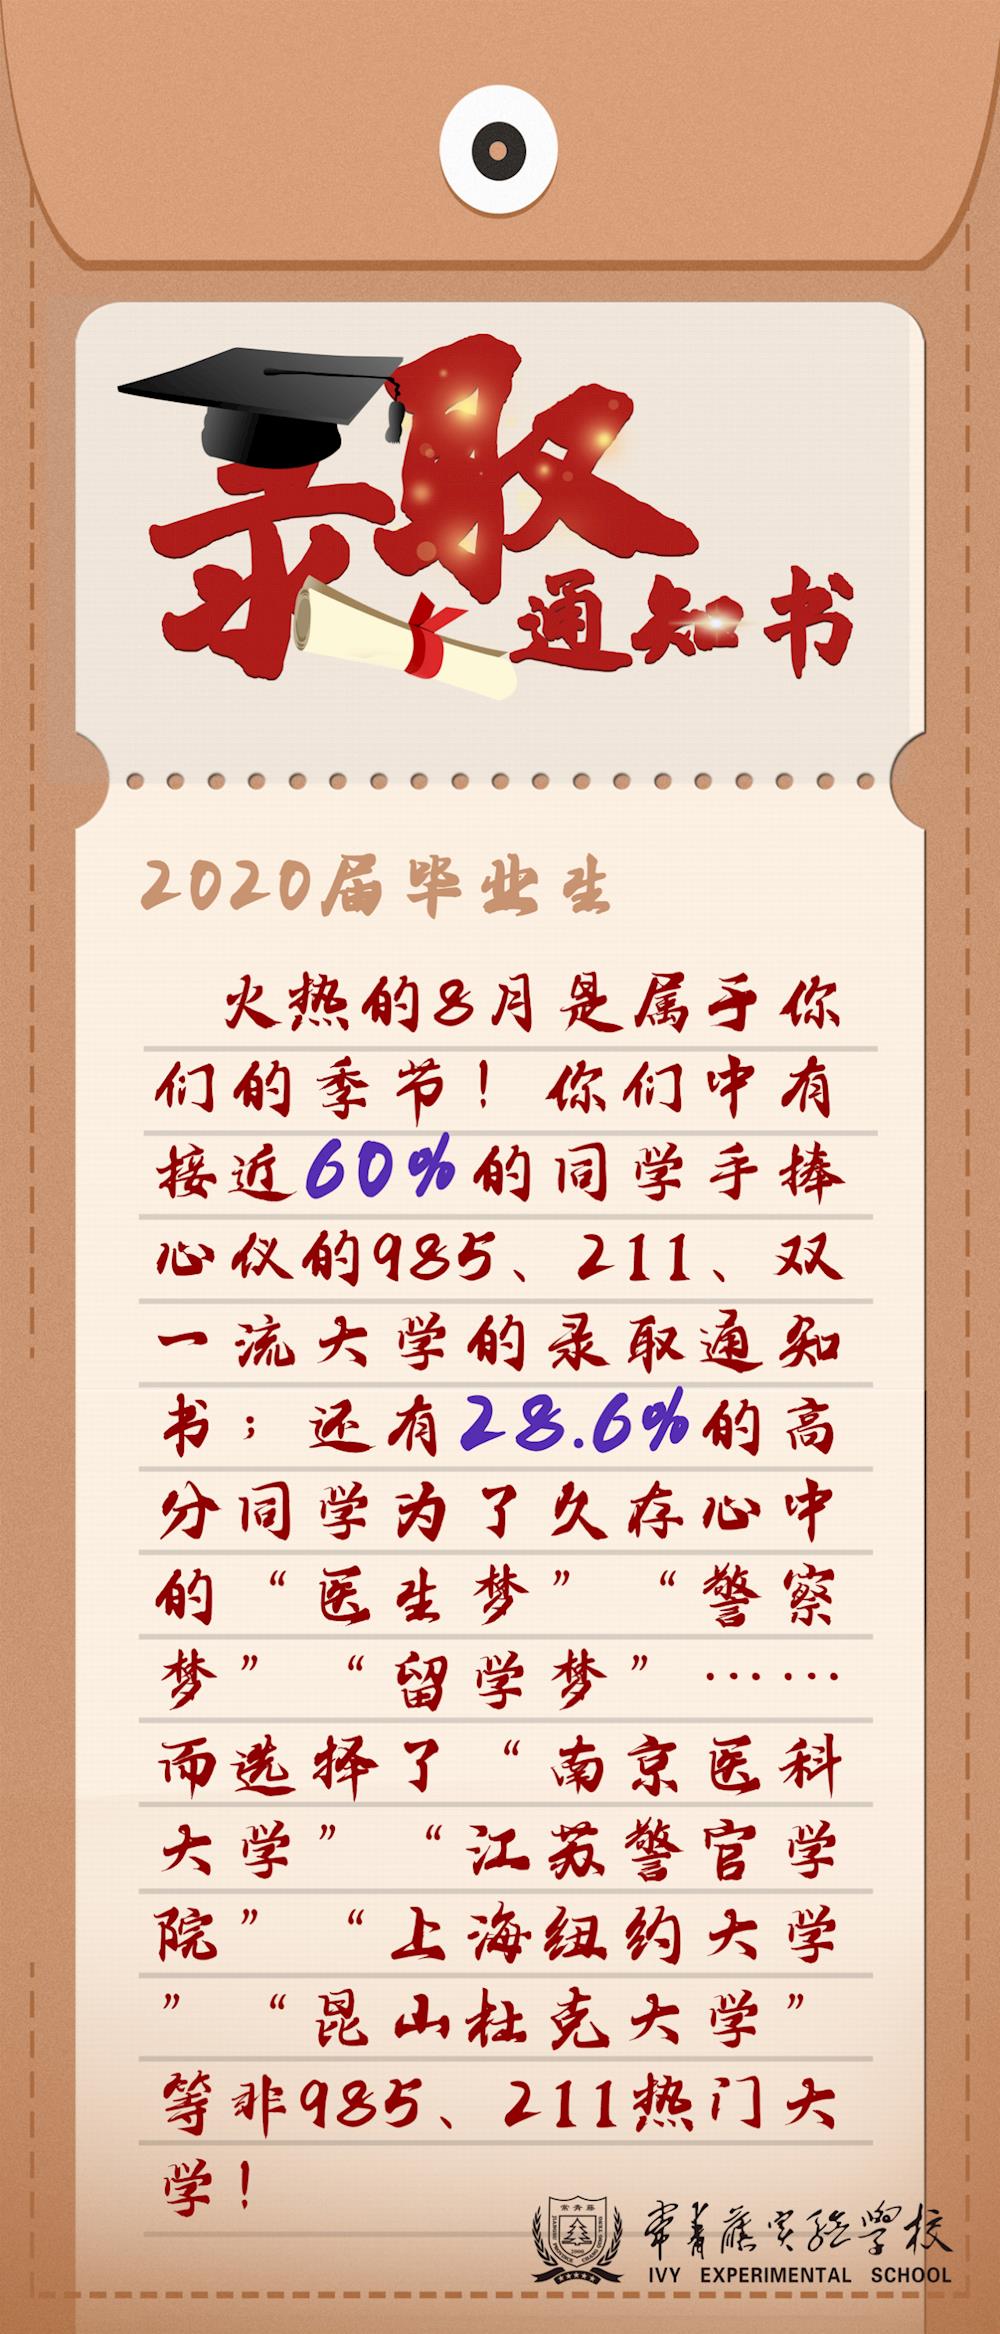 录取
通知书
2020届毕业生
火热的8月是属于你
们的季节！你们中有
接近60%的同学手捧
心仪的985、211、双
一流大学的录取通知
书；还有28.6%的高
分同学为了久存心中
的“医生梦”“警察
梦”“留学梦”……
而选择了“南京医科
大学”“江苏警官学
院”“上海纽约大学
”“昆山杜克大学”
等非985、211热门大
学！
常青藤
2000
常青藤实验学校
IVY EXPERIMENTAL SCHOOL